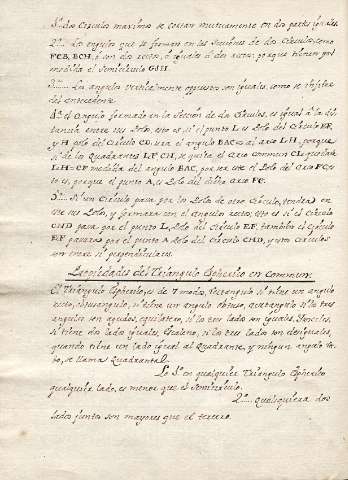 1º. dos Circulos maximos se cortan mutuamente en dos partes iguales.
2º. Los angulos que se forman en las secciones de dos Circulos, como
FCB, BCH, ô son dos rectos, ô iguales â dos rectos; porque tienen por
medida el semicirculo GSH.
3º. Los angulos verticalmente opuestos son iguales, como se infiere
del antecedente.
4º. el angulo formado en la Seccion de dos Circulos, es igual â la dis-
tancia entre sus Polos, esto es, si el punto L es Polo del Circulo EF,
y H polo del Circulo CD, sera el angulo BAC = al arco LH, porque
si de los Quadrantes LF, CH, se quita el arco commun CL, quedará
LH = CF medida del angulo BAC, por ser este el Polo del arco FC, es-
to es, porque el punto A, es Polo del dicho arco FC.
5º. Si un Circulo pasa por los Polos de otro Circulo, tendra en
este sus Polos, y formara con el angulos rectos; esto es si el Circulo
CHD pasa por el punto L, Polo del Circulo EF, tambien el Circulo
EF pasara por el punto A Polo del Circulo CHD, y estos Circulos
son entre si perpendiculares.
Propiedades del Triangulo Spherico en Commun.
El Triangulo Spherico, es de 7 modos, Rectangulo si tiene un angulo
recto, obtusangulo, si tiene un angulo obtuso, acutangulo si los tres
angulos son agudos, equilatero, si los tres lados son iguales, Ysosceles,
si tiene dos lados iguales, Scaleno, si los tres lados son desiguales,
quando tiene un lado igual al Quadrante, y ningun angulo rec-
to, se llama Quadrantal.
Lo 1º. en qualquier Triangulo Spherico
qualquier lado, es menor que el Semicirculo.
2º. qualesquiera dos
lados juntos son mayores que el tercero.